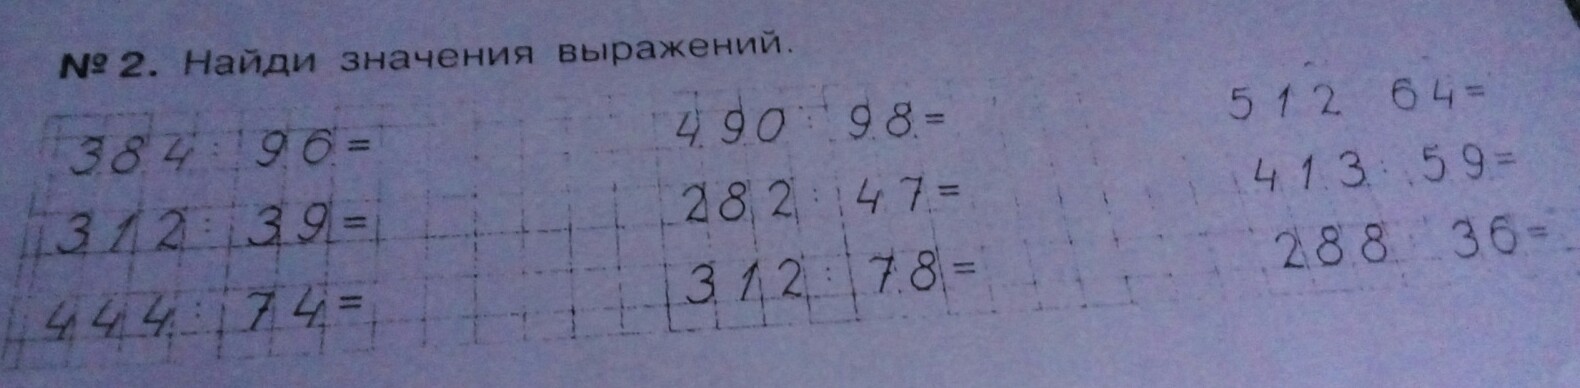 № 2. Найди значения выражений.
384 : 96 = 490 : 98 = 512 64 =
312 : 39 = 282 : 47 = 413 : 59 =
444 : 74 = 312 : 78 = 288 : 36 =